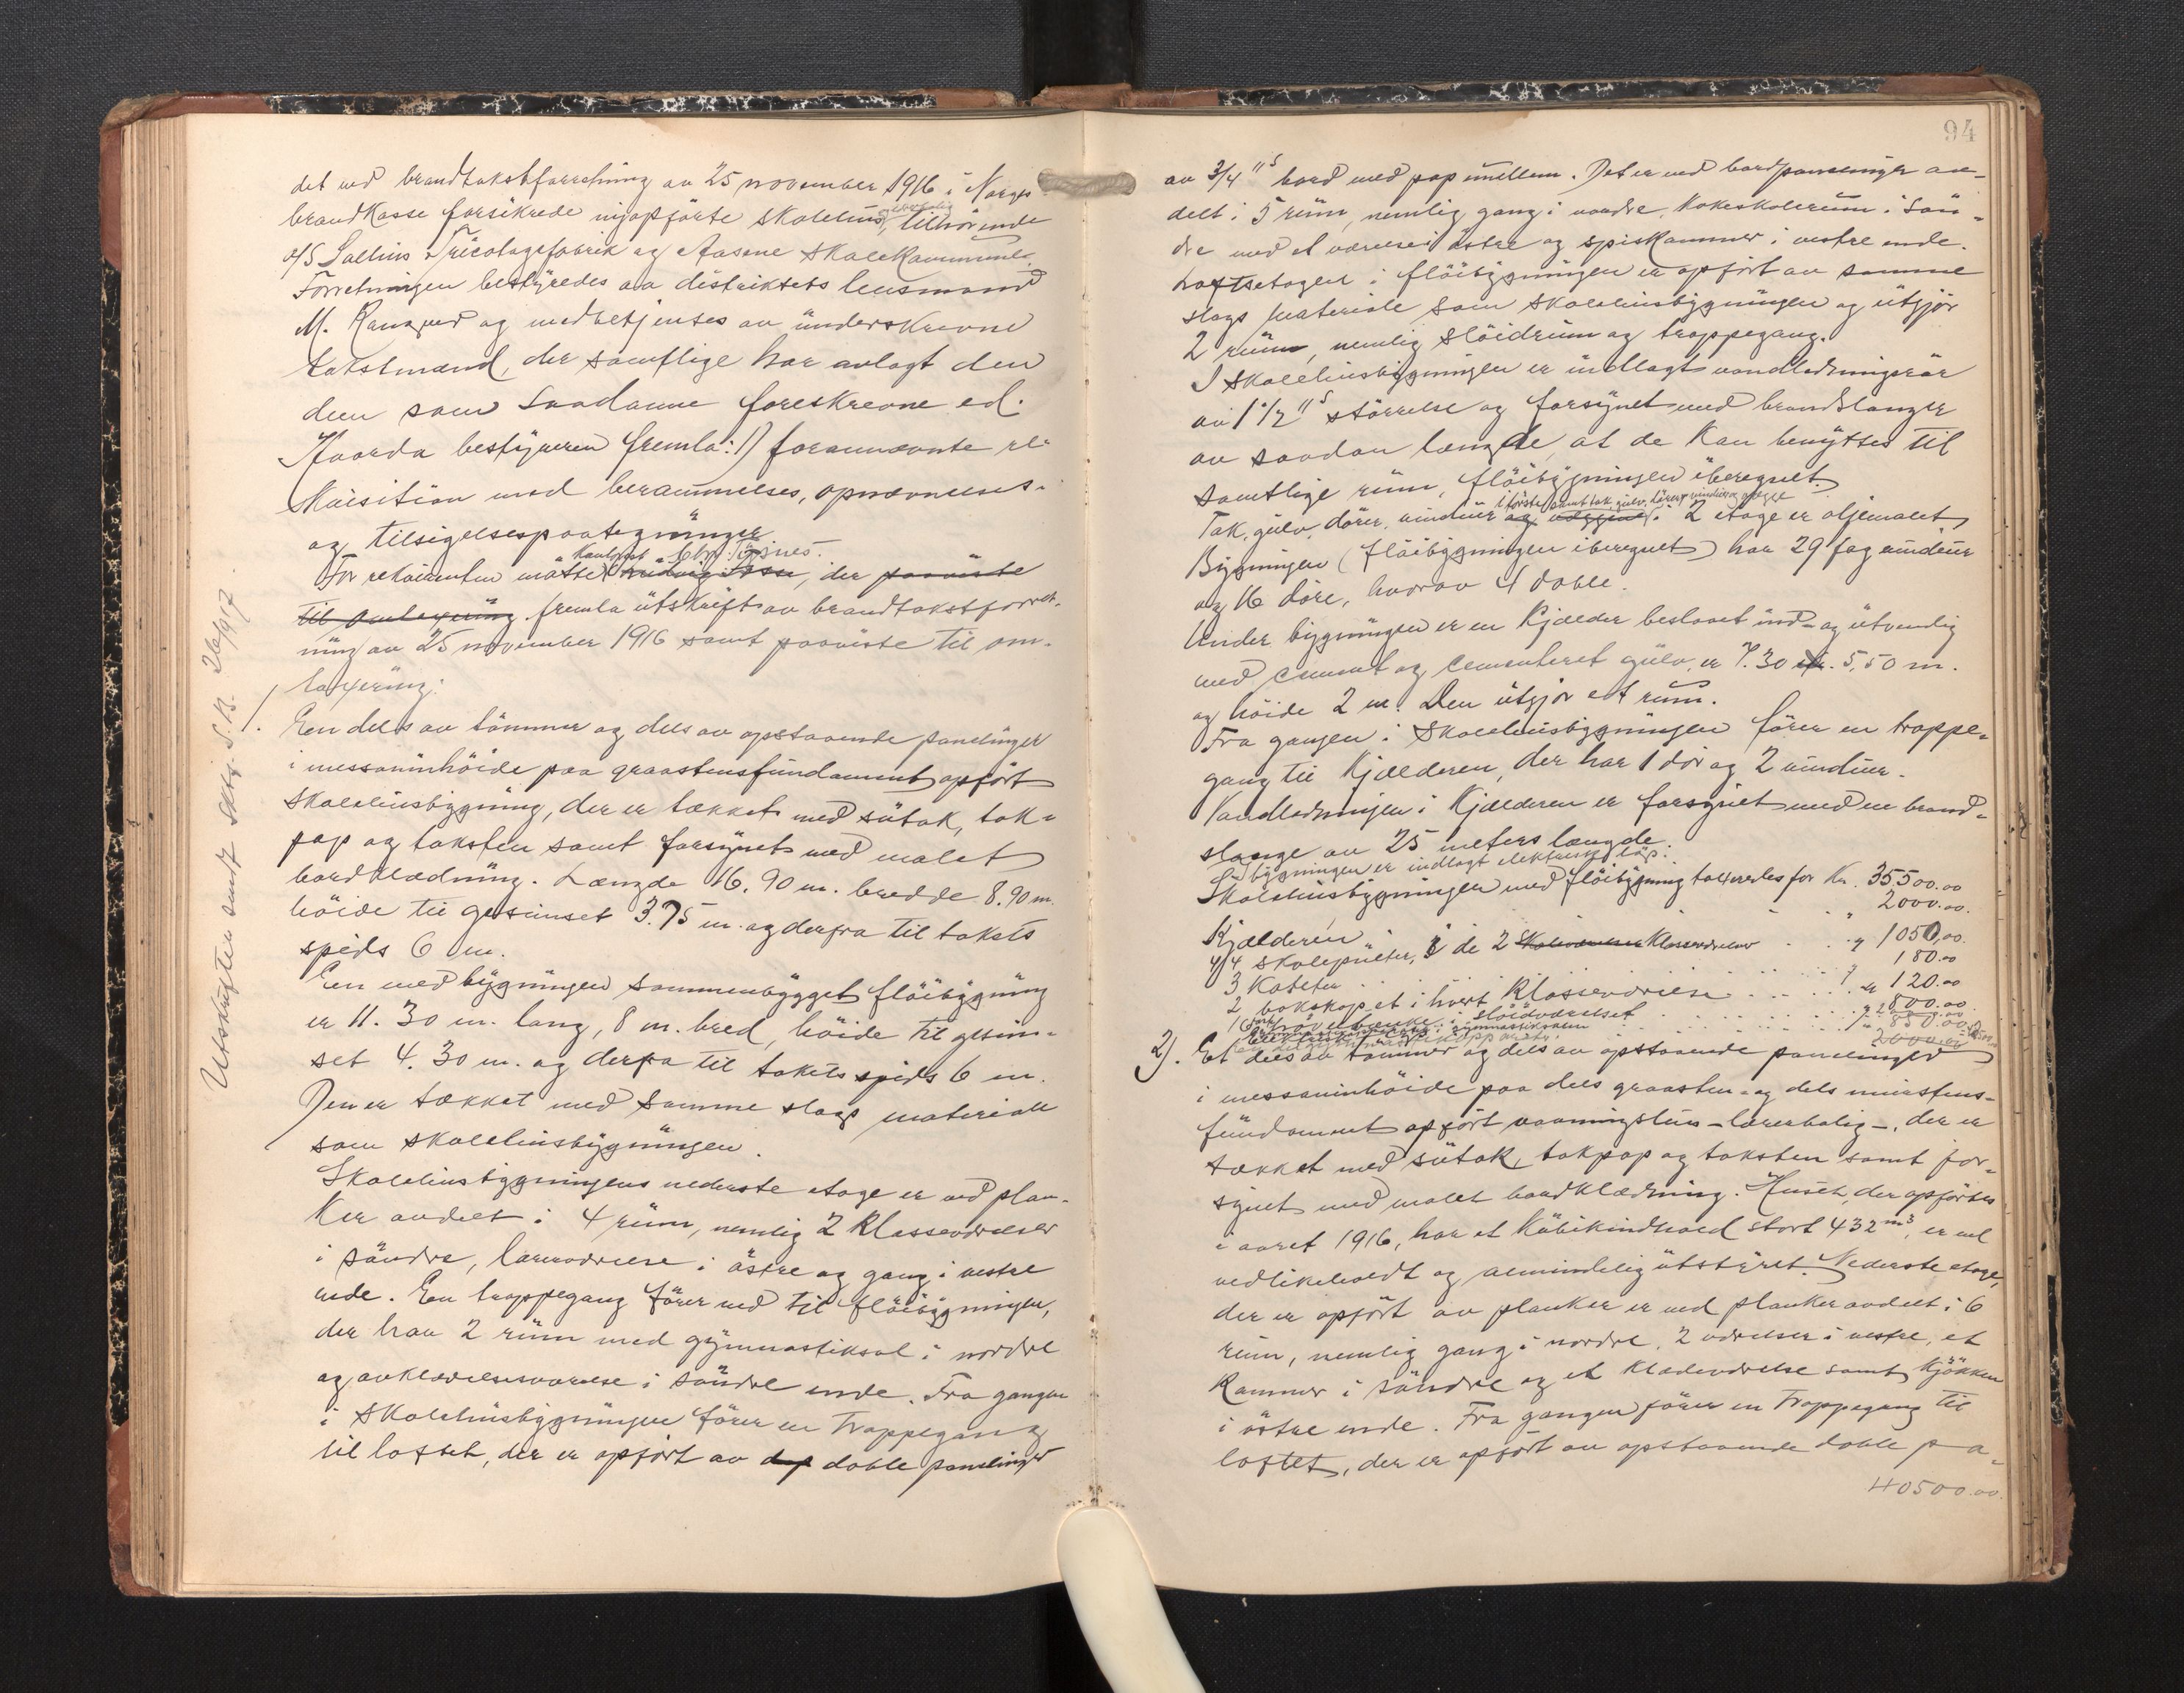 det ved brandtakstforretning av 25 november 1916 i Norges
brandkasse forsikrede nyopförte skolehus, tilhörende
A/S Salhus Tricotagefabrik og Aasane skolekommune.
Forretningen bestyredes av distriktets lensmand
M. Ramsvad og medbetjentes av underskrevne
takstmænd, der samtlige har avlagt den
dem som saadanne foreskrevne ed.
Hvorda bestyreren fremla: 1) forannævnte re-
kvisition med berammelses, opnævnelses-
og tilsigelsespaategninger
For rekvirenten mötte , der paaviste
til omtaxering fremla utskrift av brandtakstforret-
ning av 25 november 1916 samt paaviste til om-
taxering:
Utskriften sendt Skrg. S.B. 26/1917.
1. Een dels av tömmer og dels av opstaaende panelinger
i messaninhöide paa graastensfundament opfört
skolehusbygning, der er tækket med sutak, tak-
pap og taksten samt forsynet med malet
bordklædning. Længde 16.90 m. bredde 8.90 m.
höide til gesimset 3.75 m. og derfra til takets
spids 6 m.
En med bygningen sammenbygget flöibygning
er 11.30 m. lang, 8 m. bred, höide til gesim-
set 4.30 m. og derfra til takets spids 6 m.
Den er tækket med samme slags materiale
som skolehusbygningen.
Skolehusbygningens nederste etage er ved plan-
ker avdelt i 4 rum, nemlig 2 klasseværelser
i söndre, lærerværelse i östre og gang i vestre
ende. En trappegang förer ned til flöibygningen,
der har 2 rum med gymnastiksal i nordre
og avklædelsesværelse i söndre ende. Fra gangen
i skolehusbygningen förer en trappegang
til loftet, der er opfört av dop doble panelinger
94
av 3/4"s bord med pap imellem. Det er ved bordpanelinger av-
delt i 5 rum, nemlig gang i nordre, kokeskolerum i sön-
dre med et værelse i östre og spiskammer i vestre ende.
Loftsetagen i flöibygningen er opfört av samme
slags materiale som skolehusbygningen og utgjör
2 rum, nemlig slöidrum og trappegang.
I skolehusbygningen er indlagt vandledningsrör
av 1 1/2"s störrelse og forsynet med brandslanger
av saadan længde at de kan benyttes til
samtlige rum, flöibygningen iberegnet
i förste samt tak, gulv, dörer, vinduer og vægge
Tak, gulv, dörer, vinduer og væggene i 2 etage er oljemalet
Bygningen (flöibygningen iberegnet) har 29 fag vinduer
og 16 döre, hvorav 4 doble.
Under bygningen er en kjælder beslaaet ind- og utvendig
med cement og cementeret gulv, er 7.30 m. 5,50 m.
og höide 2 m. Den utgjör ett rum.
Fra gangen i skolehusbygningen förer en trappe-
gang til kjælderen, der har 1 dör og 2 vinduer.
Vandledningen i kjælderen er forsynet med en brand-
slange av 25 meters længde.
I bygningen er indlagt elektrisk lys.
Skolehusbygningen med flöibygning taxeredes for Kr. 35500.00
Kjælderen " 2000.00.
44 skolepulter, i de 2 klasseværelser " 1050,00.
3 Kateter " 180.00
2 bokskap et i hvert klasseværelse " 120.00
16 hövelbænke i slöidværelset " 800.00
850.00
2). Et dels av tömmer og dels av opstaaende panelinger
i messaninhöide paa dels graasten- og dels murstens-
fundament opfört vaaningshus – lærerbolig –, der er
tækket med sutak, takpap og taksten samt for-
synet med malet bordklædning. Huset, der opförtes
i aaret 1916, har et kubikindhold stort 432 m³, er vel
vedlikeholdt og almindelig utstyret. Nederste etage,
der er opfört av planker er ved planker avdelt i 6
rum, nemlig gang i nordre, 2 værelser i vestre, et
kammer i söndre og et klædeværelse samt kjökken
i östre ende. Fra gangen förer en trappegang til
loftet, der er opfört av opstaaende doble pa-
40500.00.